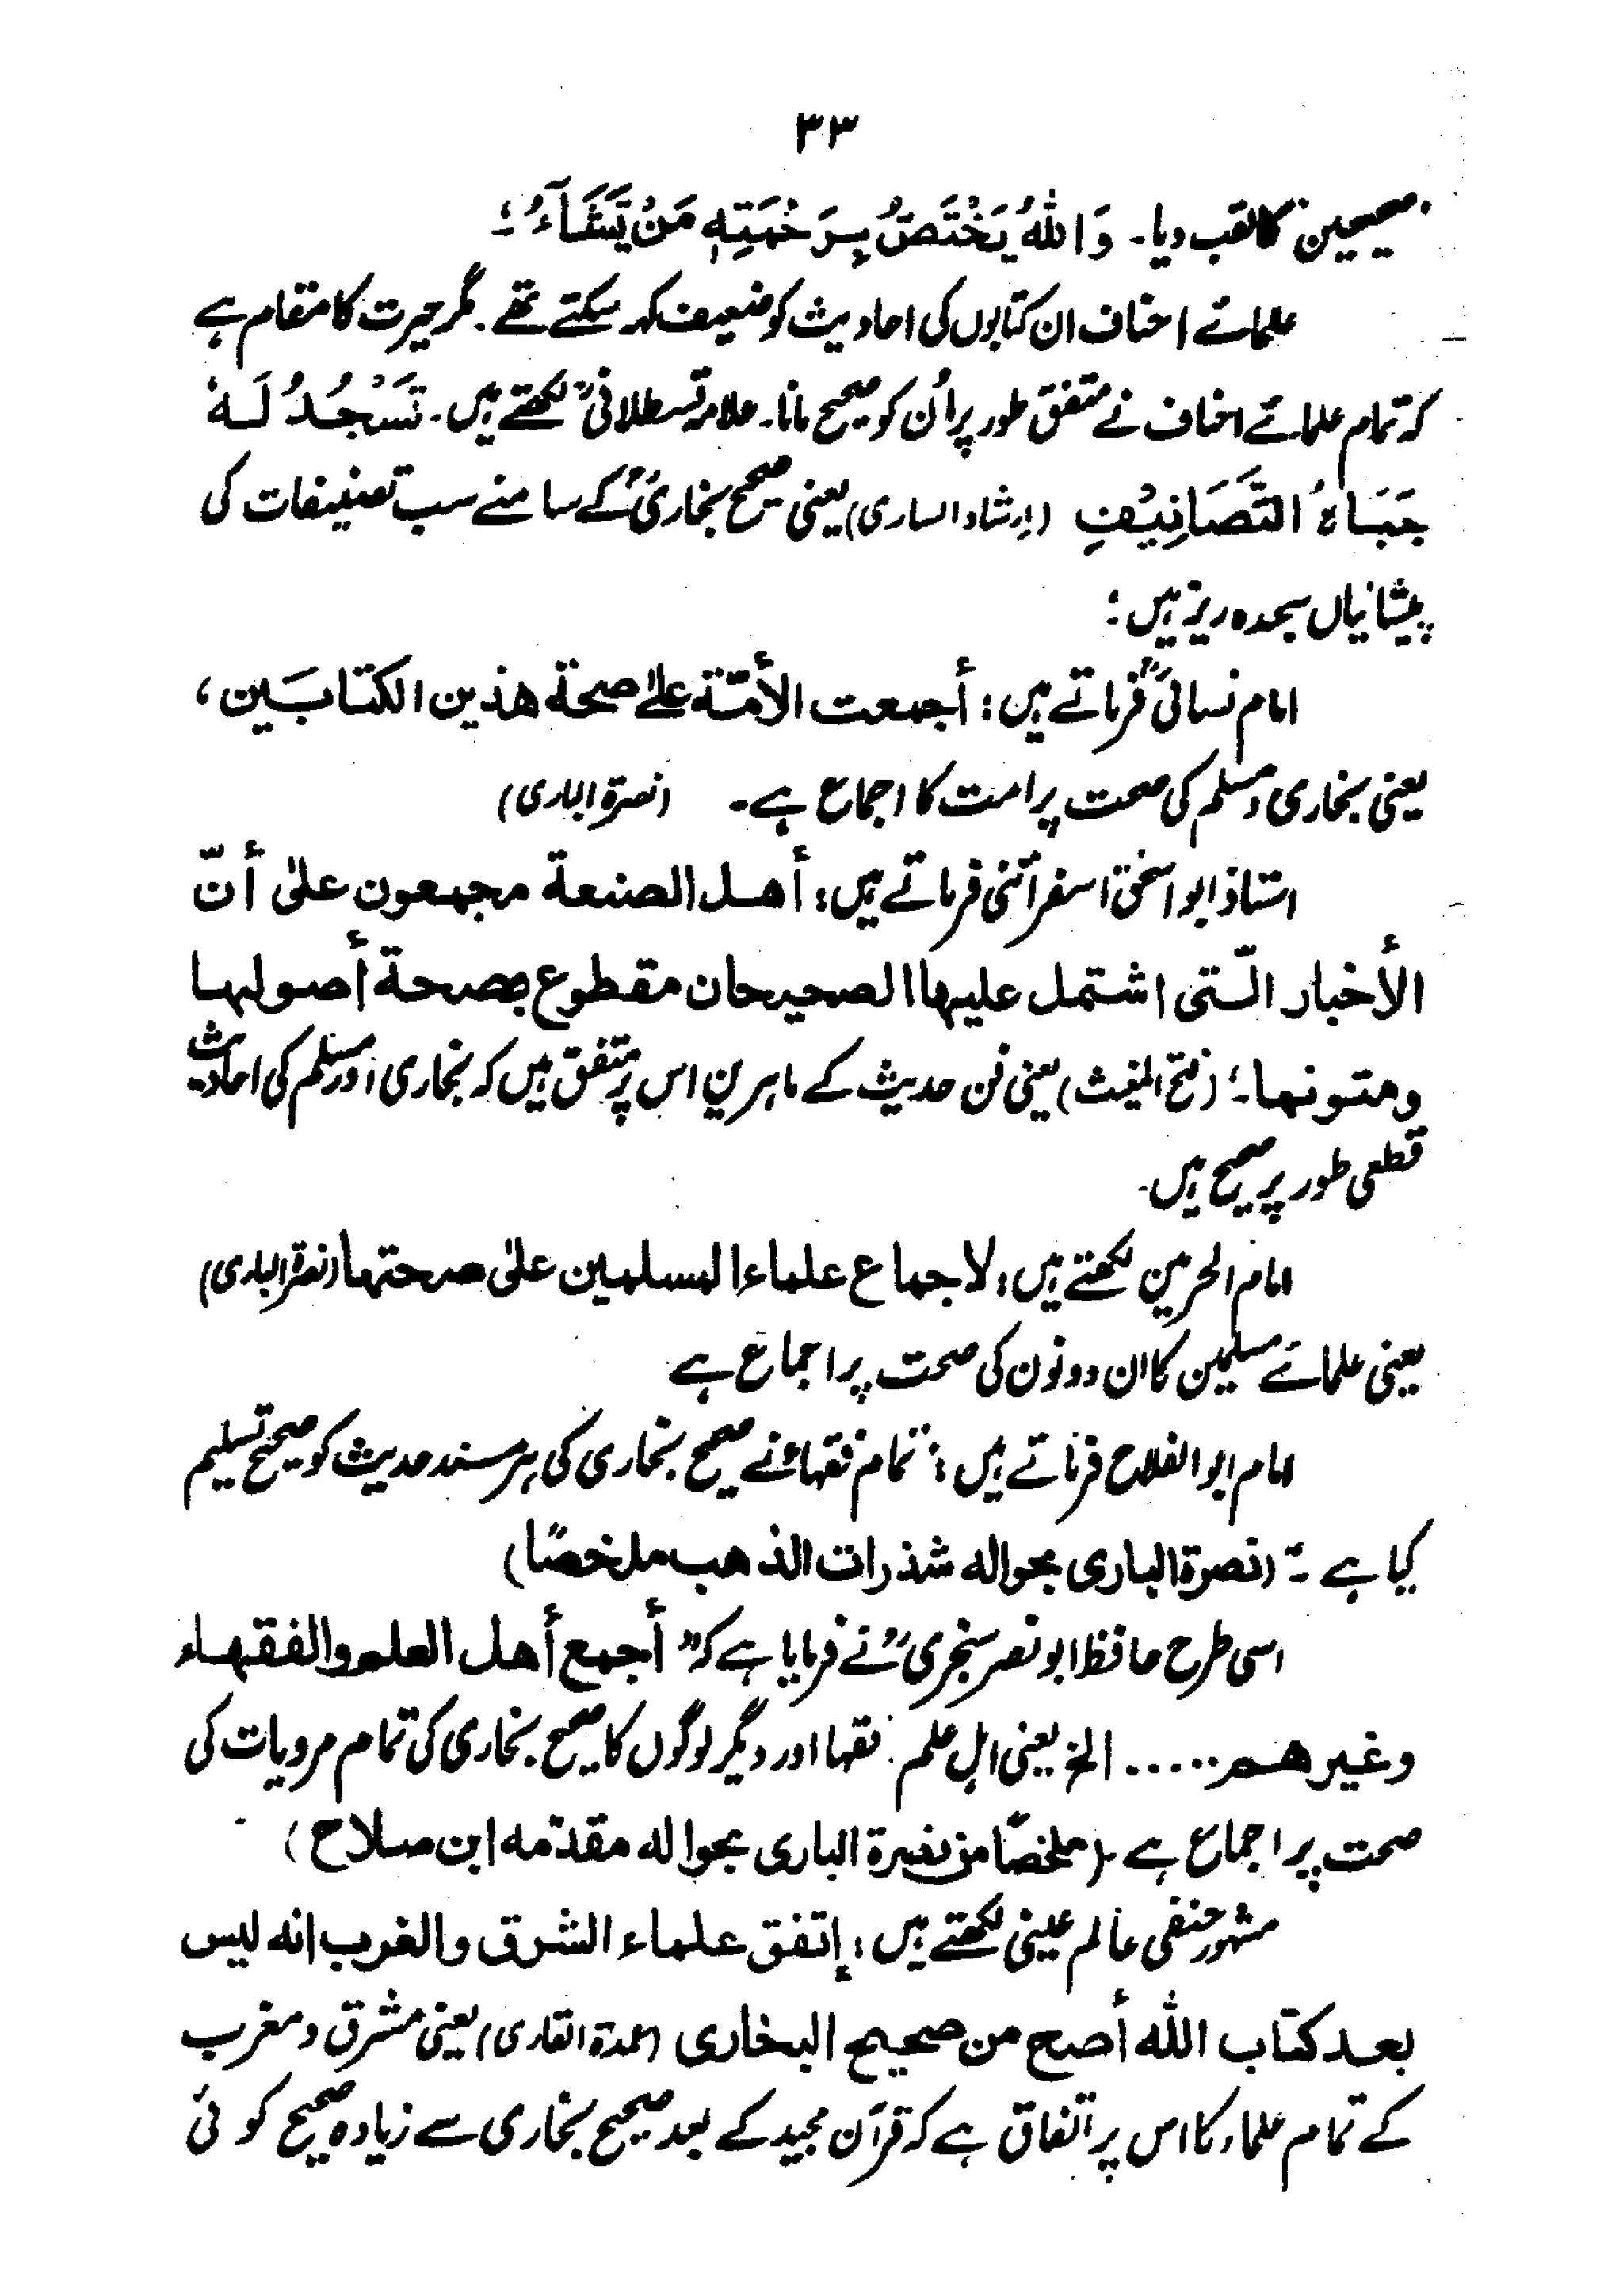 ۳۳
صحیحین کا لقب دیا۔ وَاللّٰهُ يَخْتَصُّ بِرَحْمَتِهٖ مَنْ يَّشَآءُ ؛
علمائے احناف ان کتابوں کی احادیث کو ضعیف کہہ سکتے تھے۔ مگر حیرت کا مقام ہے
کہ تمام علمائے احناف نے متفق طور پر اُن کو صحیح مانا۔ علامہ قسطلانیؒ لکھتے ہیں۔ تَسْجُدُ لَهُ
جَبَاهُ التَّصَانِيْفِ (ارشاد الساری) یعنی صحیح بخاریؒ کے سامنے سب تصنیفات کی
پیشانیاں سجدہ ریز ہیں ؛
امام نسائیؒ فرماتے ہیں : أجمعت الأمّة علىٰ صحة هذين الكتابَين ،
یعنی بخاری و مسلم کی صحت پر امت کا اجماع ہے۔ (نصرۃ الباری)
استاذ ابو اسحٰق اسفرائنی فرماتے ہیں : أهل الصنعة مجمعون علىٰ أنّ
الأخبار الّتى اشتمل عليها الصحيحان مقطوع بصحة أصولها
ومتونها ؛ (فتح المغیث) یعنی فن حدیث کے ماہرین اس پر متفق ہیں کہ بخاری اور مسلم کی احادیث
قطعی طور پر صحیح ہیں۔
امام الحرمین لکھتے ہیں : لاجماع علماء المسلمين علىٰ صحتهما (نصرۃ الباری)
یعنی علمائے مسلمین کا ان دونوں کی صحت پر اجماع ہے
امام ابو الفلاح فرماتے ہیں : "تمام فقہاء نے صحیح بخاری کی ہر مسند حدیث کو صحیح تسلیم
کیا ہے ۔" (نصرة الباری بحوالہ شذرات الذهب ملخصاً)
اسی طرح حافظ ابو نصر سنجریؒ نے فرمایا ہے کہ "أجمع أهل العلم والفقهاء
وغيرهم ..... الخ یعنی اہل علم فقہا اور دیگر لوگوں کا صحیح بخاری کی تمام مرویات کی
صحت پر اجماع ہے۔ (ملخصاً من نصرة الباری بحوالہ مقدمہ ابن صلاح)
مشہور حنفی عالم عینی لکھتے ہیں : إتفق علماء الشرق والغرب انه ليس
بعد كتاب الله أصح من صحيح البخارى (عمدۃ القاری) یعنی مشرق و مغرب
کے تمام علماء کا اس پر اتفاق ہے کہ قرآن مجید کے بعد صحیح بخاری سے زیادہ صحیح کوئی